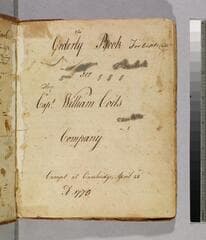 Orderly Book
For
Capt William Coits
Company
Campt at Cambridge, April 23
A 1775